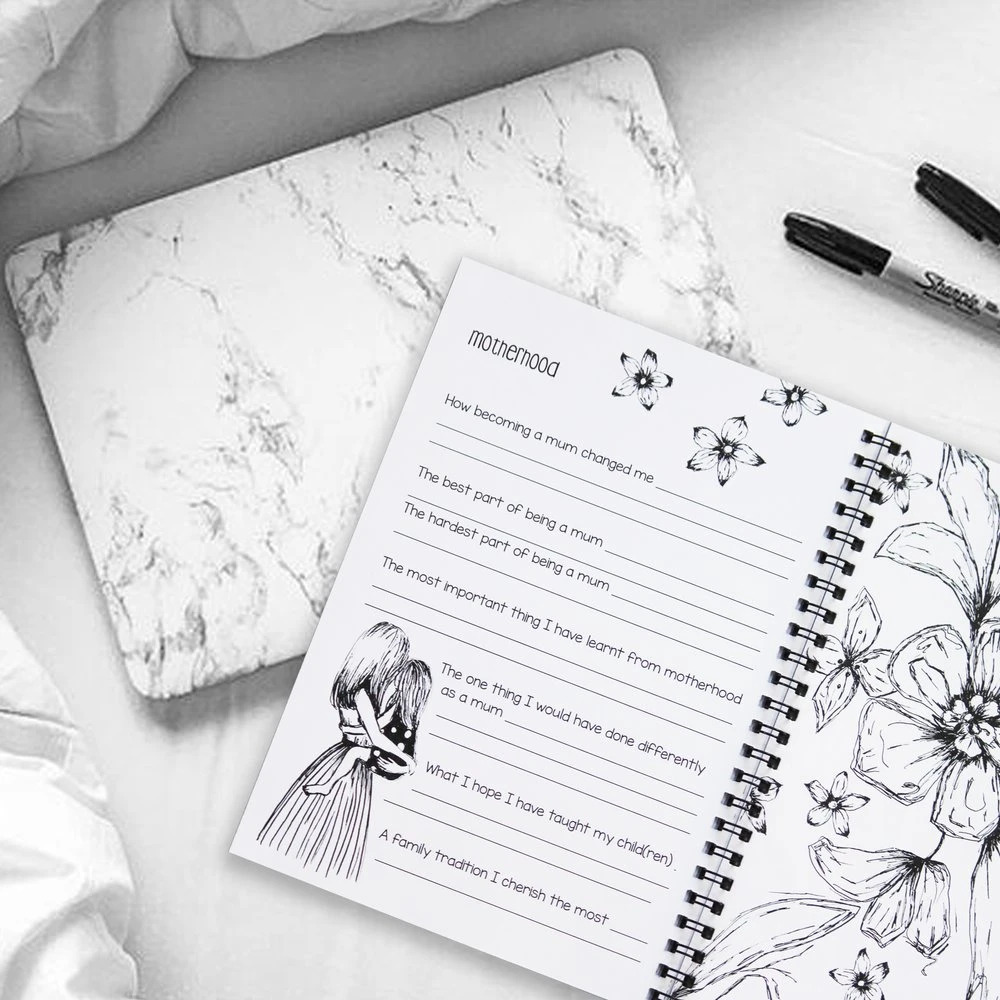 motherhood
How becoming a mum changed me
The best part of being a mum
The hardest part of being a mum
The most important thing I have learnt from motherhood
The one thing I would have done differently
as a mum
What I hope I have taught my child(ren)
A family tradition I cherish the most
Sharpie